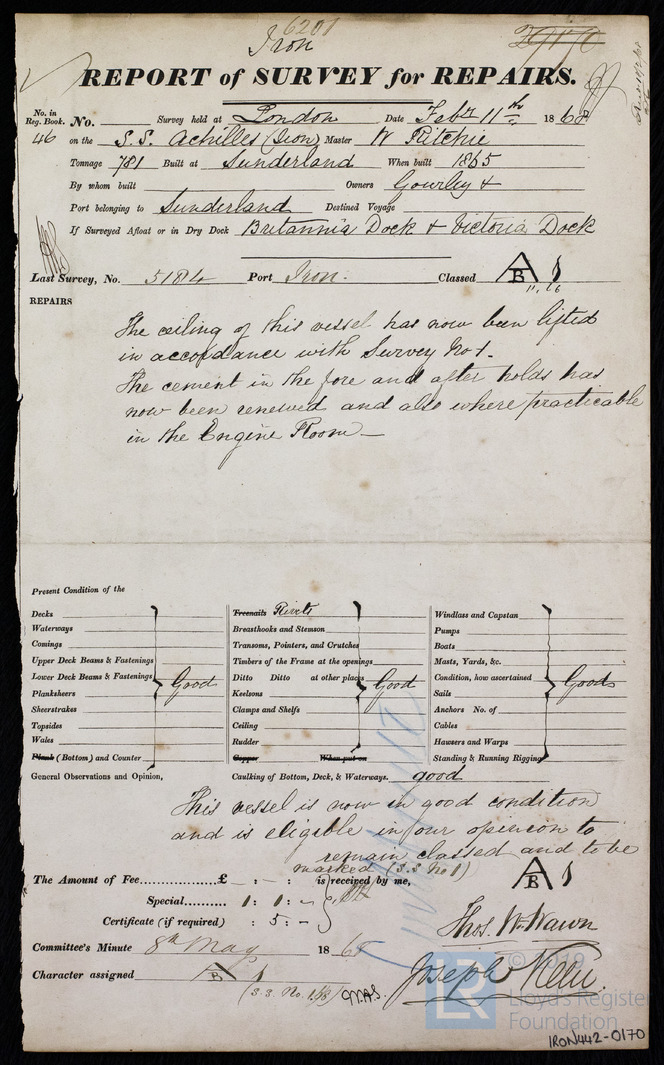 6201
Iron
REPORT of SURVEY for REPAIRS.
No. in Reg. Book. No. Survey held at London Date Feby 11th 1868
46 on the S.S. Achilles (Iron) Master W Ritchie
Tonnage 781 Built at Sunderland When built 1865
By whom built Owners Gourley &
Port belonging to Sunderland Destined Voyage
If Surveyed Afloat or in Dry Dock Britannia Dock & Victoria Dock
Last Survey, No. 5184 Port Iron. Classed A B 1
11, 66
REPAIRS
The ceiling of this vessel has now been lifted
in accordance with Survey No 1.
The cement in the fore and after holds has
now been renewed and also where practicable
in the Engine Room—
Present Condition of the
Decks Treenails Rivets Windlass and Capstan
Waterways Breasthooks and Stemson Pumps
Comings Transoms, Pointers, and Crutches Boats
Upper Deck Beams & Fastenings Timbers of the Frame at the openings Masts, Yards, &c.
Lower Deck Beams & Fastenings Good Ditto Ditto at other places Good Condition, how ascertained Good
Planksheers Keelsons Sails
Sheerstrakes Clamps and Shelfs Anchors No. of
Topsides Ceiling Cables
Wales Rudder Hawsers and Warps
Plank (Bottom) and Counter Copper When put on Standing & Running Rigging
General Observations and Opinion, Caulking of Bottom, Deck, & Waterways. good
This vessel is now in good condition
and is eligible in our opinion to
remain classed and to be
marked (S.S. No 1) A B 1
The Amount of Fee £ - : - : is received by me,
Special 1 : 1 : -
Certificate (if required) : 5 : -
Thos. Wm Wawn
Committee's Minute 8th May 1868
Character assigned A B 1
(S.S. No. 1, 68)
Joseph Keen.
© 2019
LR
Lloyd's Register
Foundation
IRON442-0170